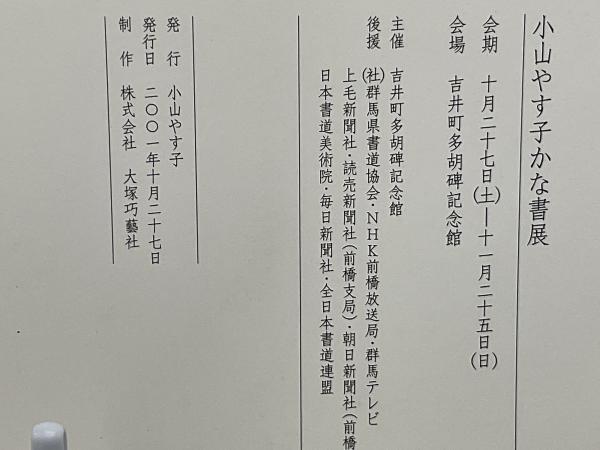 小山やす子かな書展
会期 十月二十七日(土)―十一月二十五日(日)
会場 吉井町多胡碑記念館
主催 吉井町多胡碑記念館
後援 (社)群馬県書道協会・NHK前橋放送局・群馬テレビ
上毛新聞社・読売新聞社(前橋支局)・朝日新聞社(前橋
日本書道美術院・毎日新聞社・全日本書道連盟
発行 小山やす子
発行日 二〇〇一年十月二十七日
制作 株式会社 大塚巧藝社